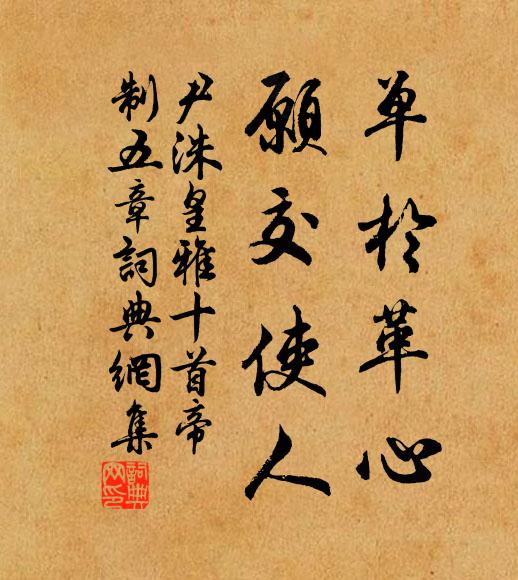 单於革心
願交使人
尹洙皇雅十首帝
制五章詞典網集
詞典網印